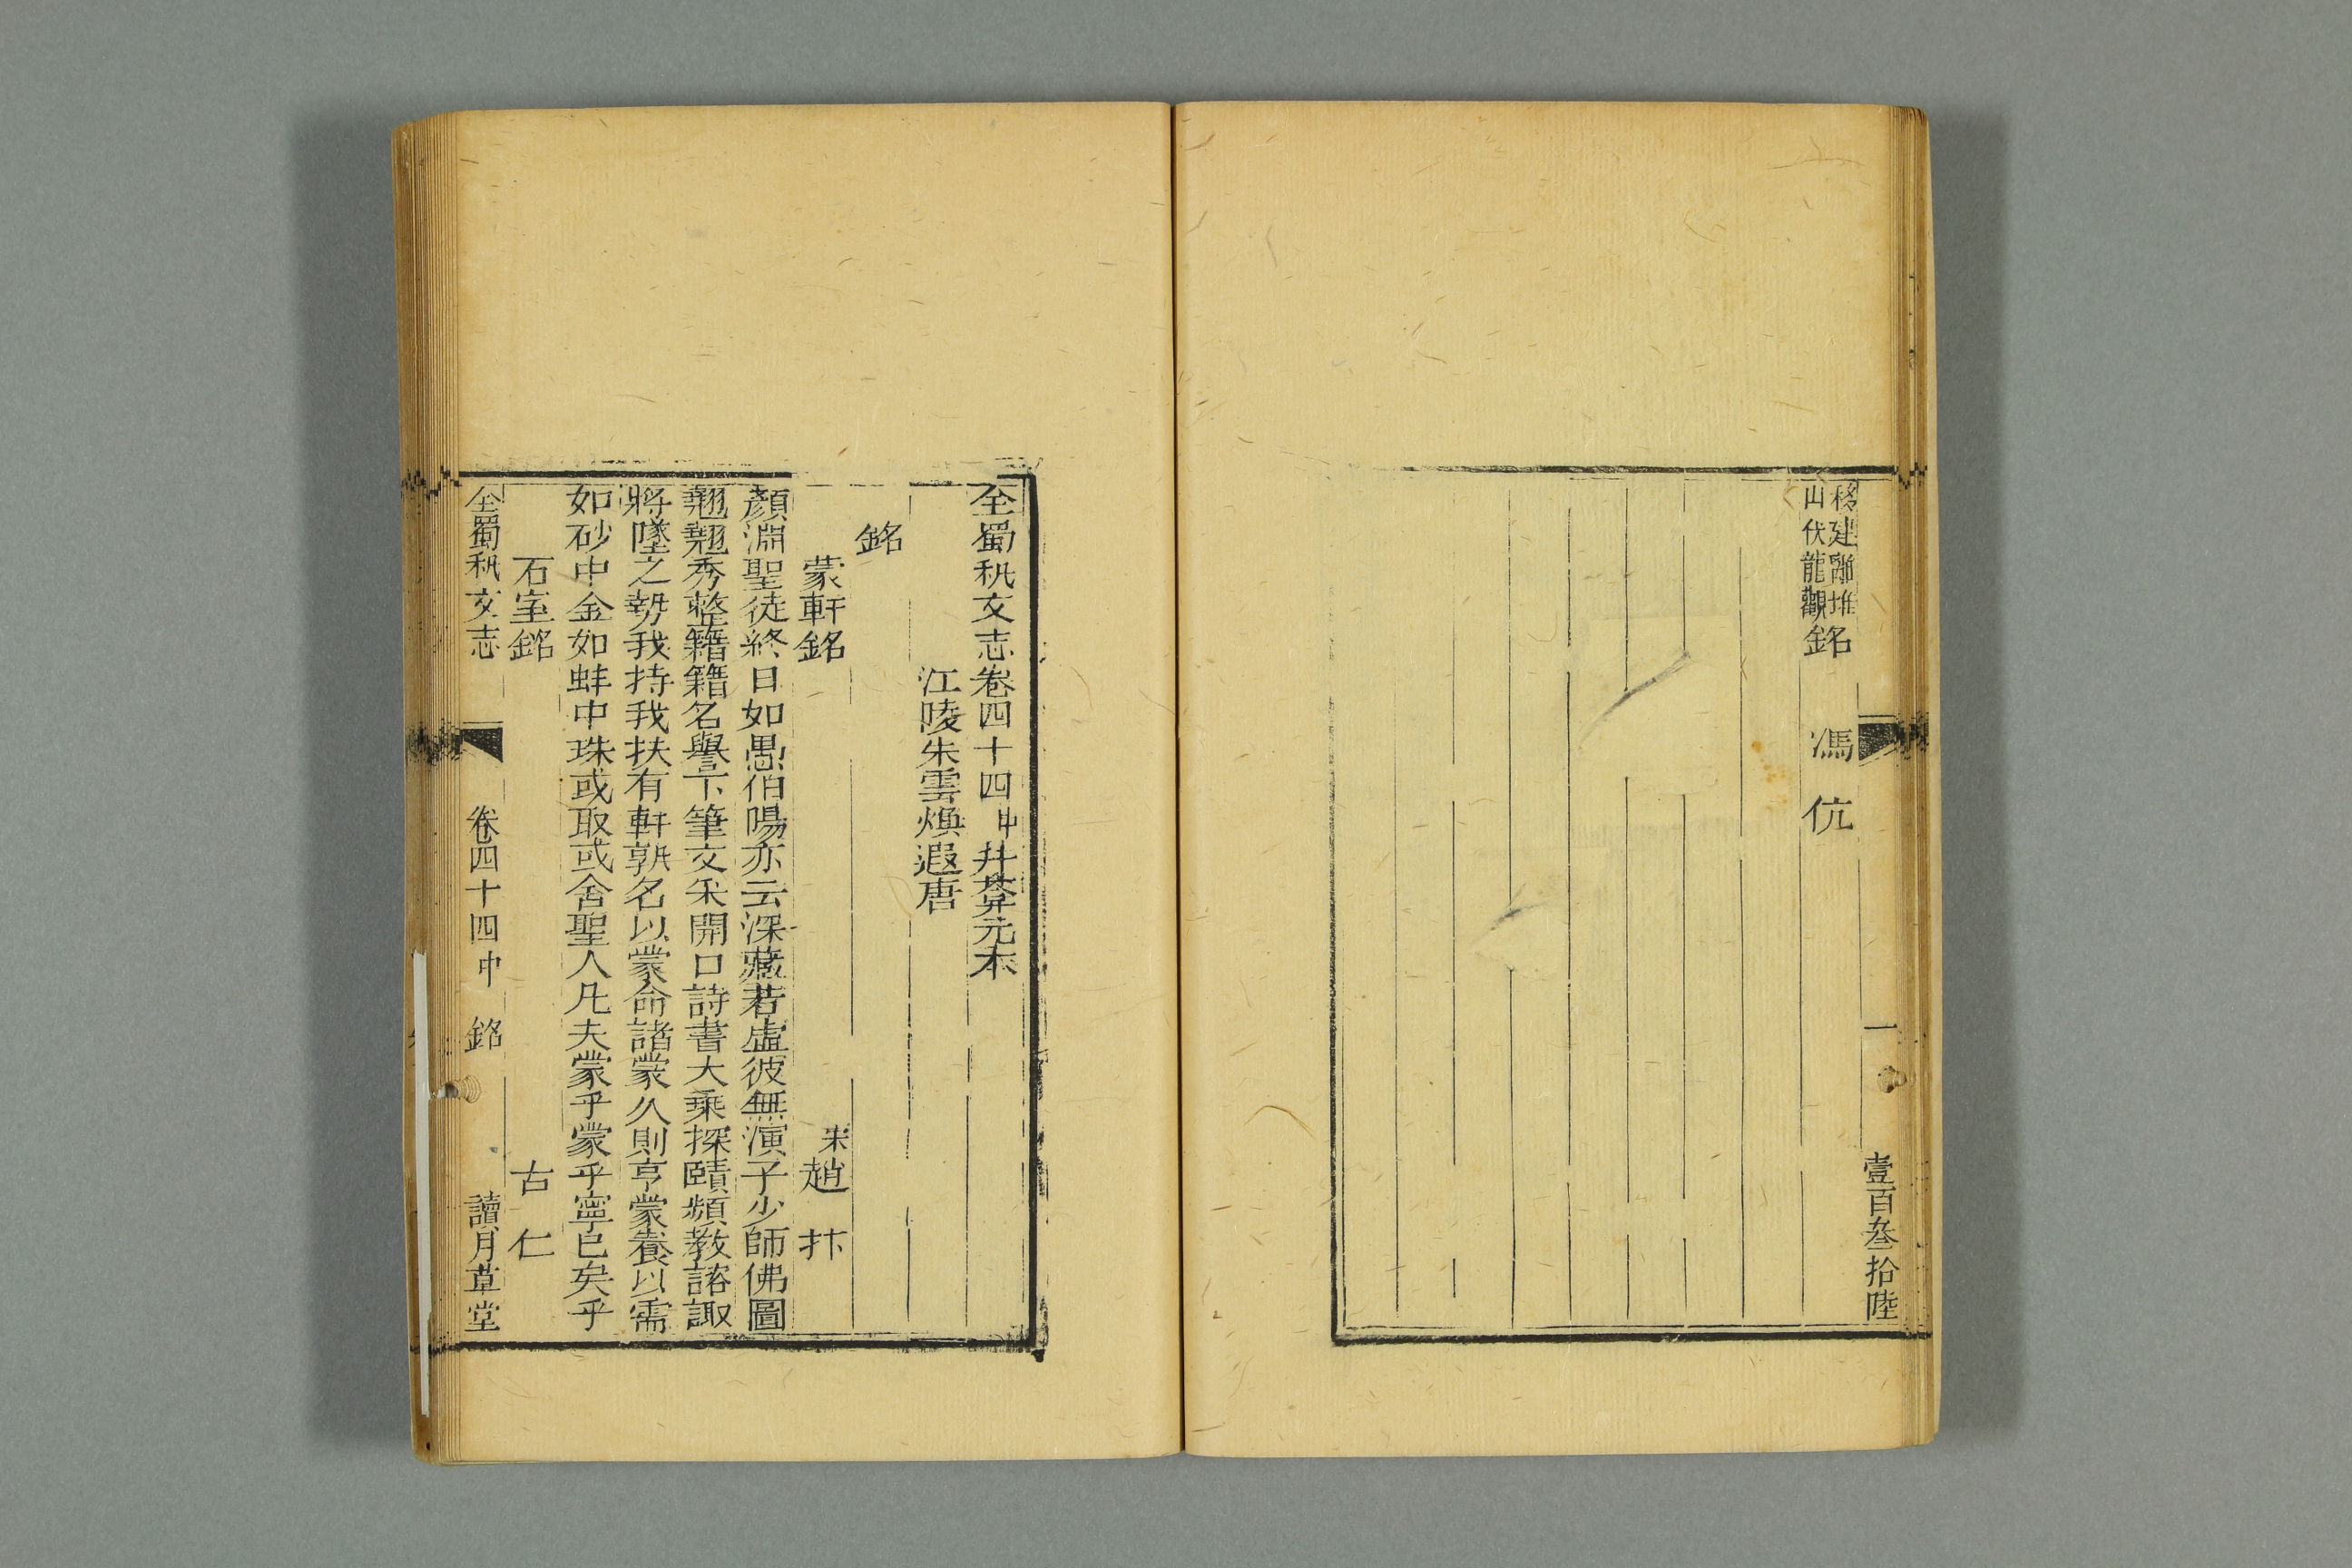 壹百叁拾陸
一
移建離堆
山伏龍觀
銘　馮　伉
全蜀秇文志卷四十四中　升菴元本
江陵朱雲煥遐唐
銘
蒙軒銘　宋趙　抃
顏淵聖徒終日如愚伯陽亦云深藏若虛彼無演子少師佛圖
翹翹秀整籍籍名譽下筆文采開口詩書大乘探賾頻教諮諏
將墜之勢我持我扶有軒孰名以蒙命諸蒙久則亨蒙養以需
如砂中金如蚌中珠或取或舍聖人凡夫蒙乎蒙乎寧已矣乎
石室銘　古　仁
全蜀秇文志　卷四十四中　銘　讀月草堂